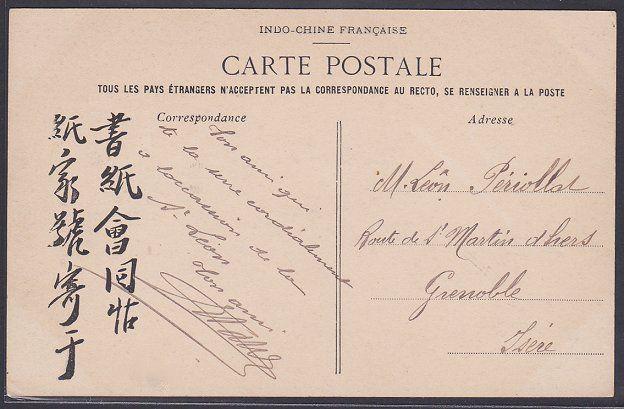 INDO-CHINE FRANÇAISE
CARTE POSTALE
TOUS LES PAYS ÉTRANGERS N'ACCEPTENT PAS LA CORRESPONDANCE AU RECTO, SE RENSEIGNER A LA POSTE
Correspondance
書紙會同帖
紙家號寄于
ton ami qui
te la une cordialement
a l'occasion de la
St Léon
ton ami
Adresse
M. Léon Périollat
Route de St Martin d'hers
Grenoble
Isère